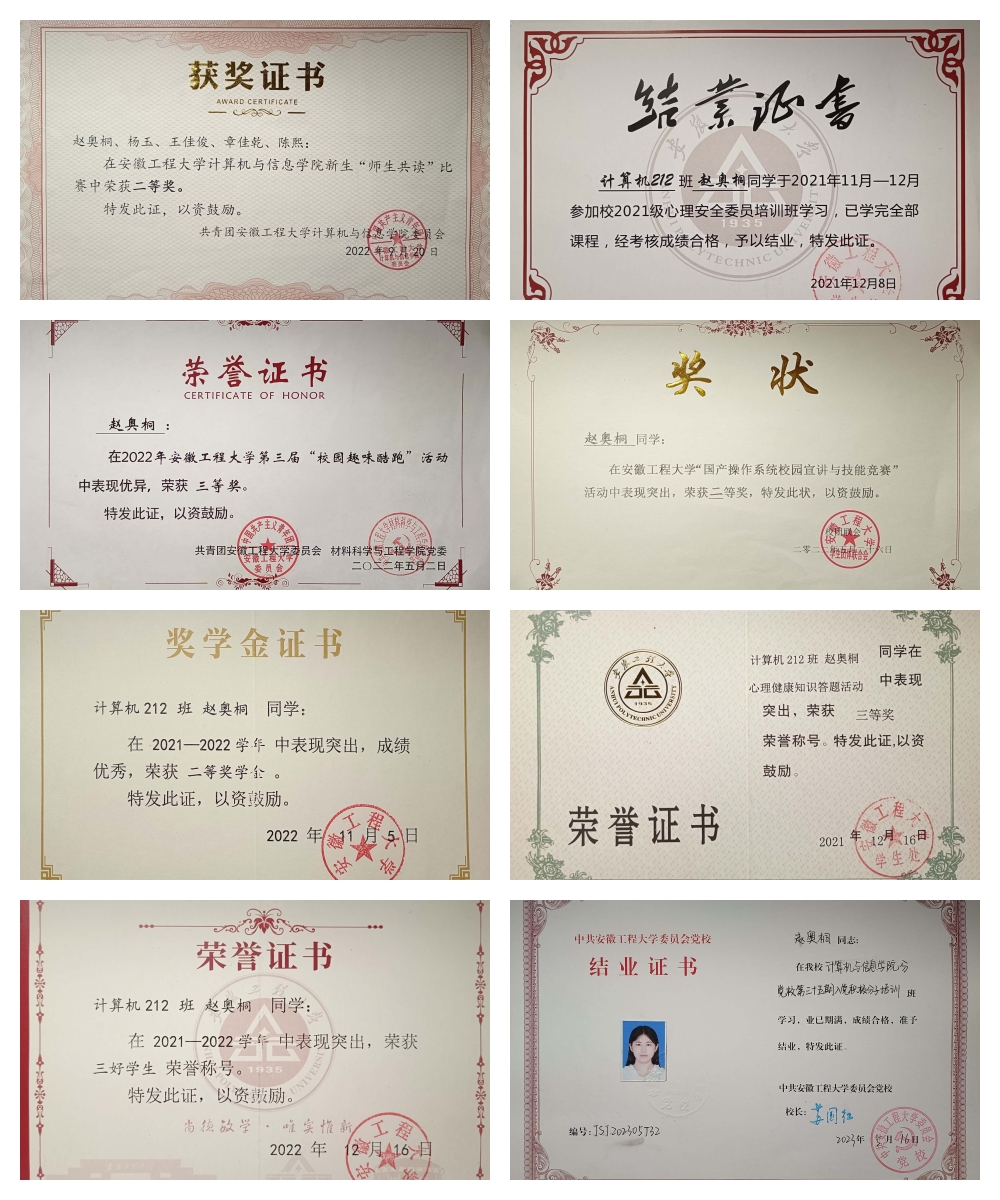 获奖证书
AWARD CERTIFICATE
赵奥桐、杨玉、王佳俊、章佳乾、陈熙：
在安徽工程大学计算机与信息学院新生“师生共读”比
赛中荣获二等奖。
特发此证，以资鼓励。
共青团安徽工程大学计算机与信息学院委员会
2022 年 9 月 20 日
结业证书
计算机212 班 赵奥桐同学于2021年11月—12月
参加校2021级心理安全委员培训班学习，已学完全部
课程，经考核成绩合格，予以结业，特发此证。
1935
POLYTECHNIC UNIVERSITY
2021年12月8日
荣誉证书
CERTIFICATE OF HONOR
赵奥桐 ：
在2022年安徽工程大学第三届“校园趣味酷跑”活动
中表现优异，荣获 三等奖。
特发此证，以资鼓励。
共青团安徽工程大学委员会 材料科学与工程学院党委
二〇二二年五月二日
奖 状
赵奥桐 同学：
在安徽工程大学“国产操作系统校园宣讲与技能竞赛”
活动中表现突出，荣获二等奖，特发此状，以资鼓励。
安徽工程大学
学生团体联合会
奖学金证书
计算机 212 班 赵奥桐 同学：
在 2021—2022 学年 中表现突出，成绩
优秀，荣获 二等奖学金 。
特发此证，以资鼓励。
2022 年 11 月 5 日
安徽工程大学
安徽工程大学
ANHUI POLYTECHNIC UNIVERSITY
1935
荣誉证书
计算机 212 班 赵奥桐 同学在
心理健康知识答题活动 中表现
突出，荣获 三等奖
荣誉称号。特发此证,以资
鼓励。
2021 年 12月 16日
安徽工程大学
学生处
荣誉证书
计算机 212 班 赵奥桐 同学：
在 2021—2022 学年 中表现突出，荣获
三好学生 荣誉称号。
1935
特发此证，以资鼓励。
尚德敏学·唯实惟新
2022 年 12 月 16 日
中共安徽工程大学委员会党校
结业证书
编号：JSJ202305732
赵奥桐 同志：
在我校 计算机与信息学院分
党校第三十五期入党积极分子培训 班
学习，业已期满，成绩合格，准予
结业，特发此证。
中共安徽工程大学委员会党校
校长：
2023年 月 16日